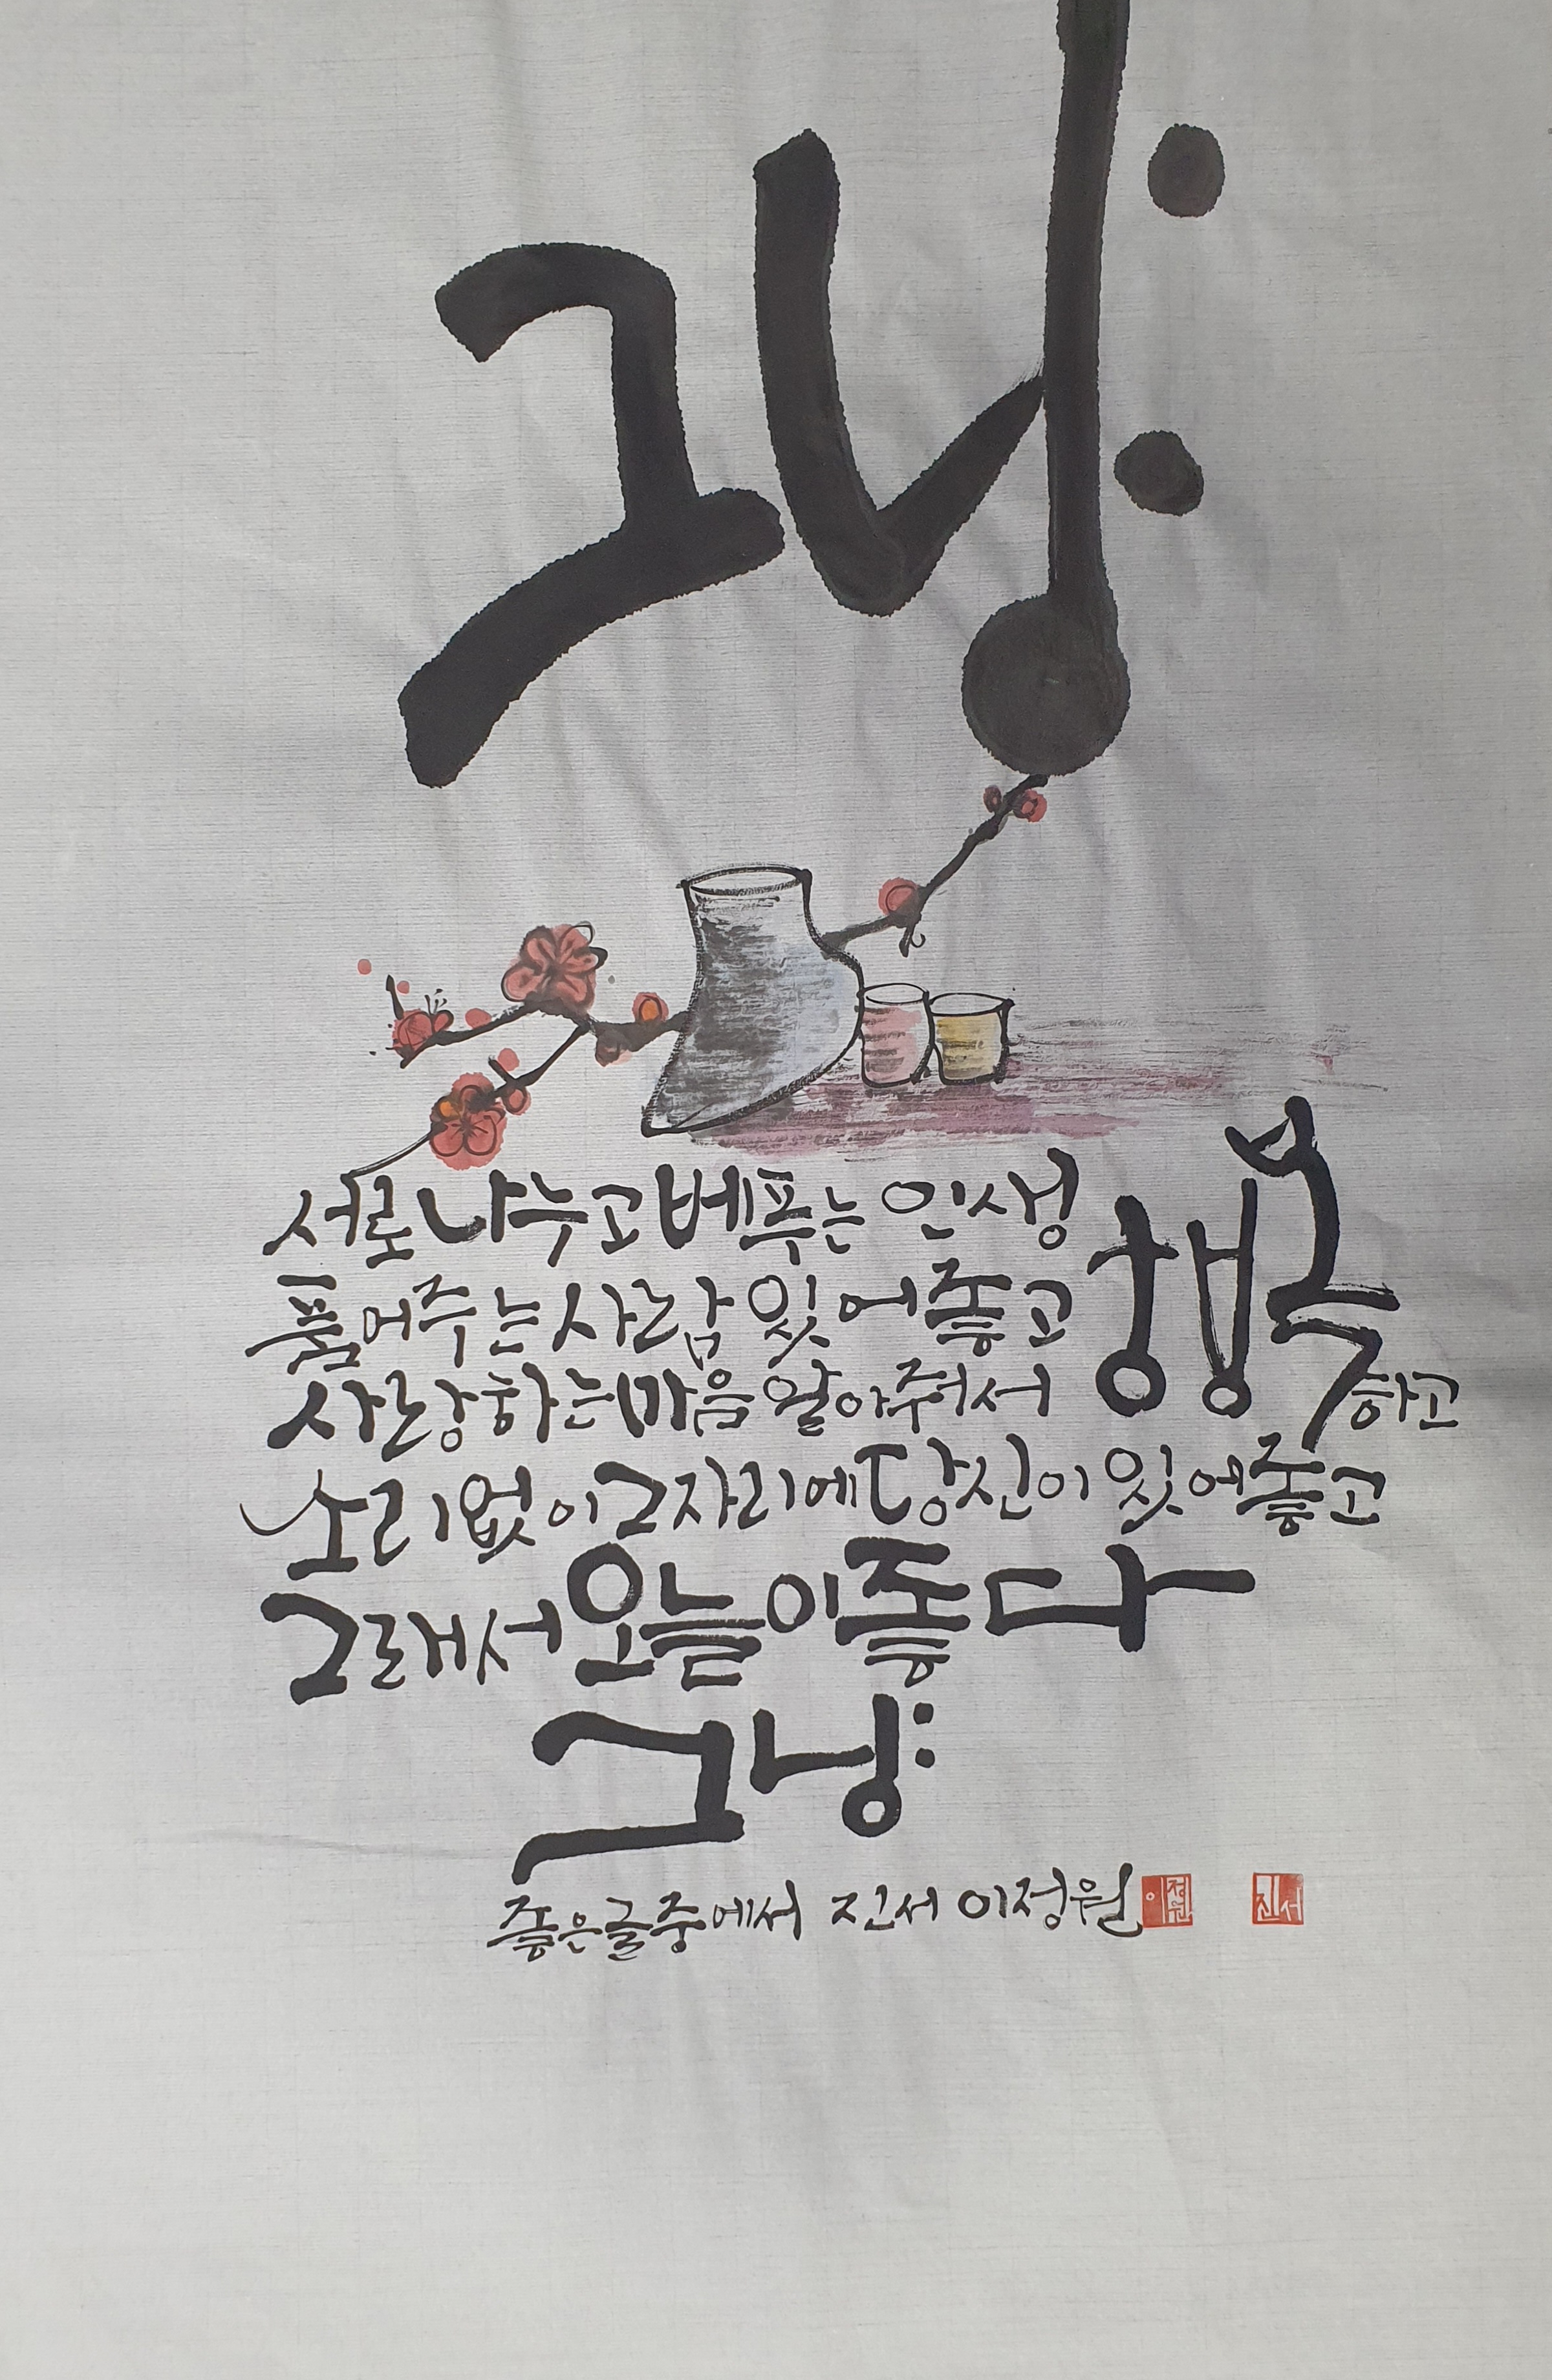 그냥
서로 나누고 베푸는 인생
품어주는 사람 있어 좋고
사랑하는 마음 알아줘서 행복하고
소리없이 그자리에 당신이 있어 좋고
그래서 오늘이 좋다
그냥
좋은글중에서 진서 이정원
이정원
진서